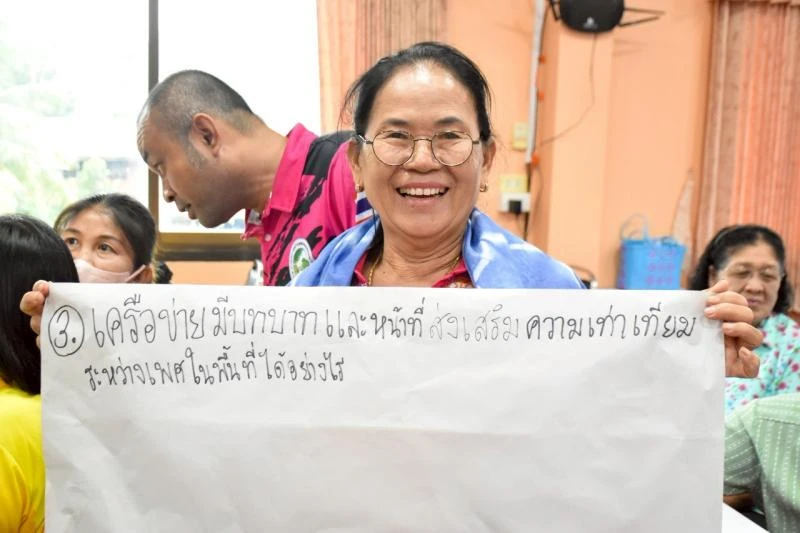 3. เครือข่าย มีบทบาทและหน้าที่ ส่งเสริม ความเท่าเทียม
ระหว่างเพศในพื้นที่ได้อย่างไร